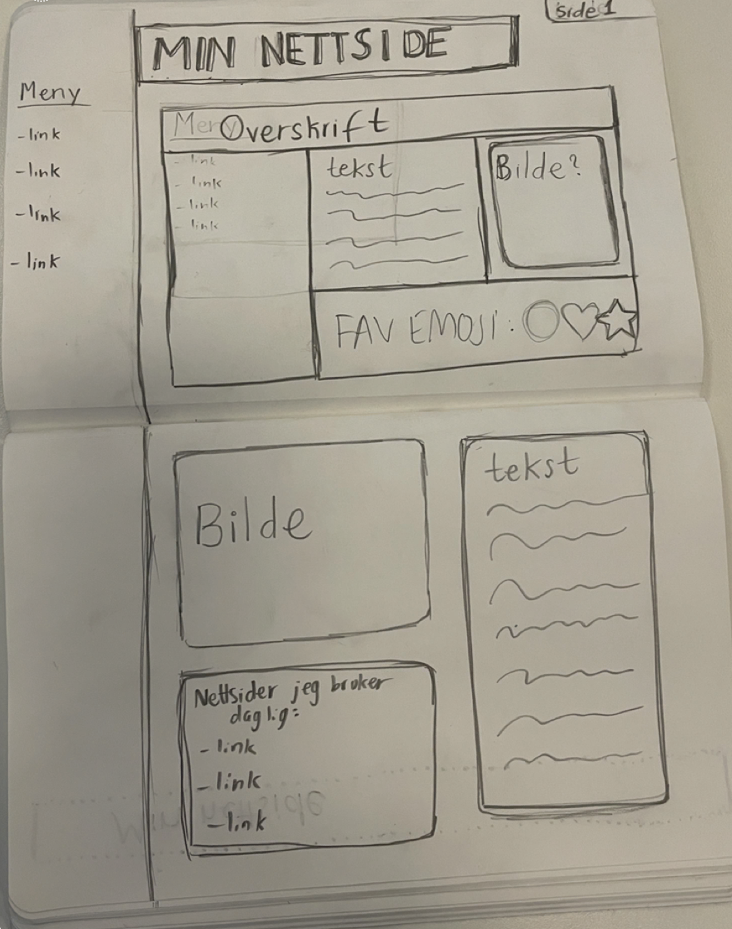 side 1
MIN NETTSIDE
Meny
- link
- link
- link
- link
Meny
Overskrift
- link
- link
- link
- link
tekst
Bilde?
FAV EMOJI:
Bilde
tekst
Nettsider jeg bruker
daglig:
- link
- link
- link
Min nettside